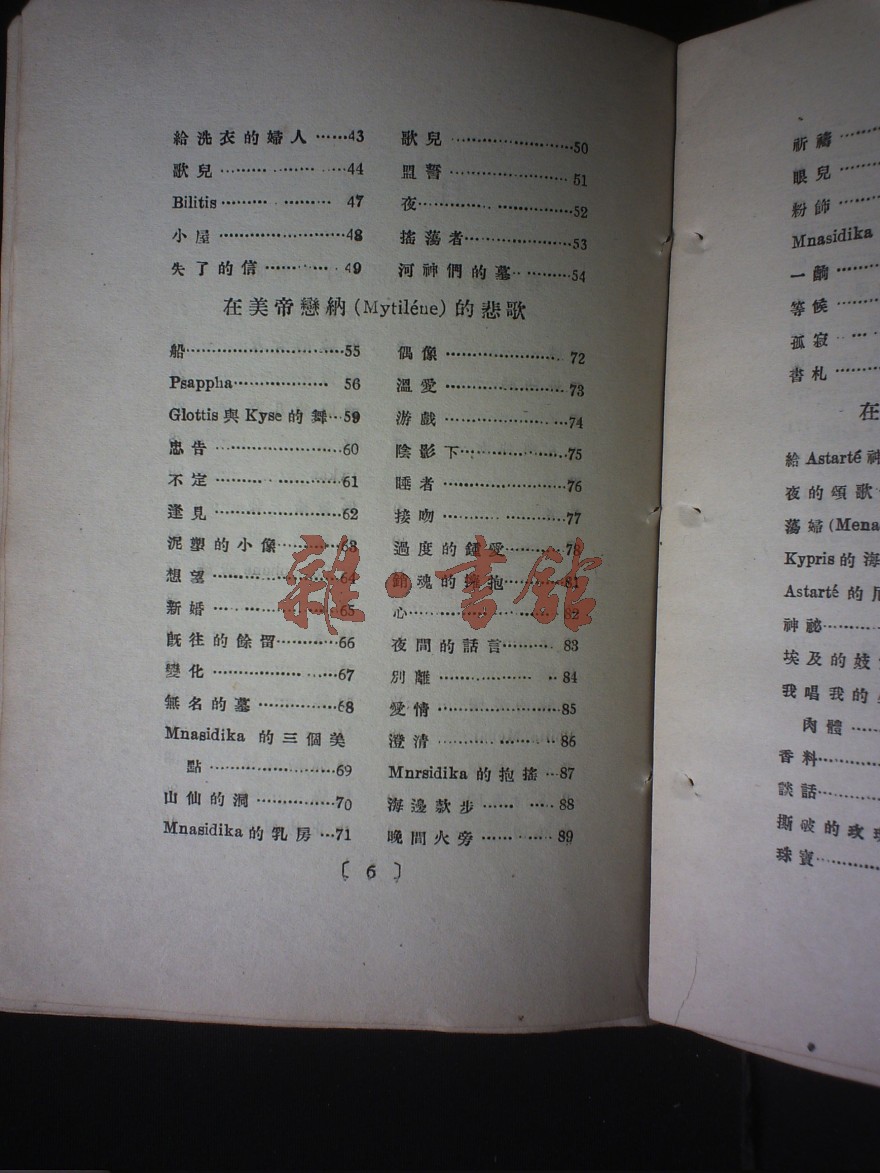 給洗衣的婦人……43
歌兒…………………44
Bilitis…………………47
小屋…………………48
失了的信……………49
歌兒…………………50
盟誓…………………51
夜……………………52
搖蕩者………………53
河神們的墓…………54
在美帝戀納(Mytiléue)的悲歌
船……………………55
Psappha………………56
Glottis與Kyse的舞…59
忠告…………………60
不定…………………61
逢見…………………62
泥塑的小像…………63
想望…………………64
新婚…………………65
旣往的餘留…………66
變化…………………67
無名的墓……………68
Mnasidika 的三個美
點……………………69
山仙的洞……………70
Mnasidika的乳房…71
偶像…………………72
溫愛…………………73
游戲…………………74
陰影下………………75
睡者…………………76
接吻…………………77
過度的鍾愛…………78
銷魂的擁抱…………81
心……………………82
夜間的話言…………83
別離…………………84
愛情…………………85
澄清…………………86
Mnrsidika的抱搖…87
海邊歀步……………88
晚間火旁……………89
〔 6 〕
祈禱…………
眼兒…………
粉飾…………
Mnasidika
一齣…………
等候…………
孤寂…………
書札…………
在
給Astarté神
夜的頌歌
蕩婦(Mena
Kypris的海
Astarté的
神祕…………
埃及的妓
我唱我的
肉體…………
香料…………
談話…………
撕破的玫
珠寶…………
雜·書館